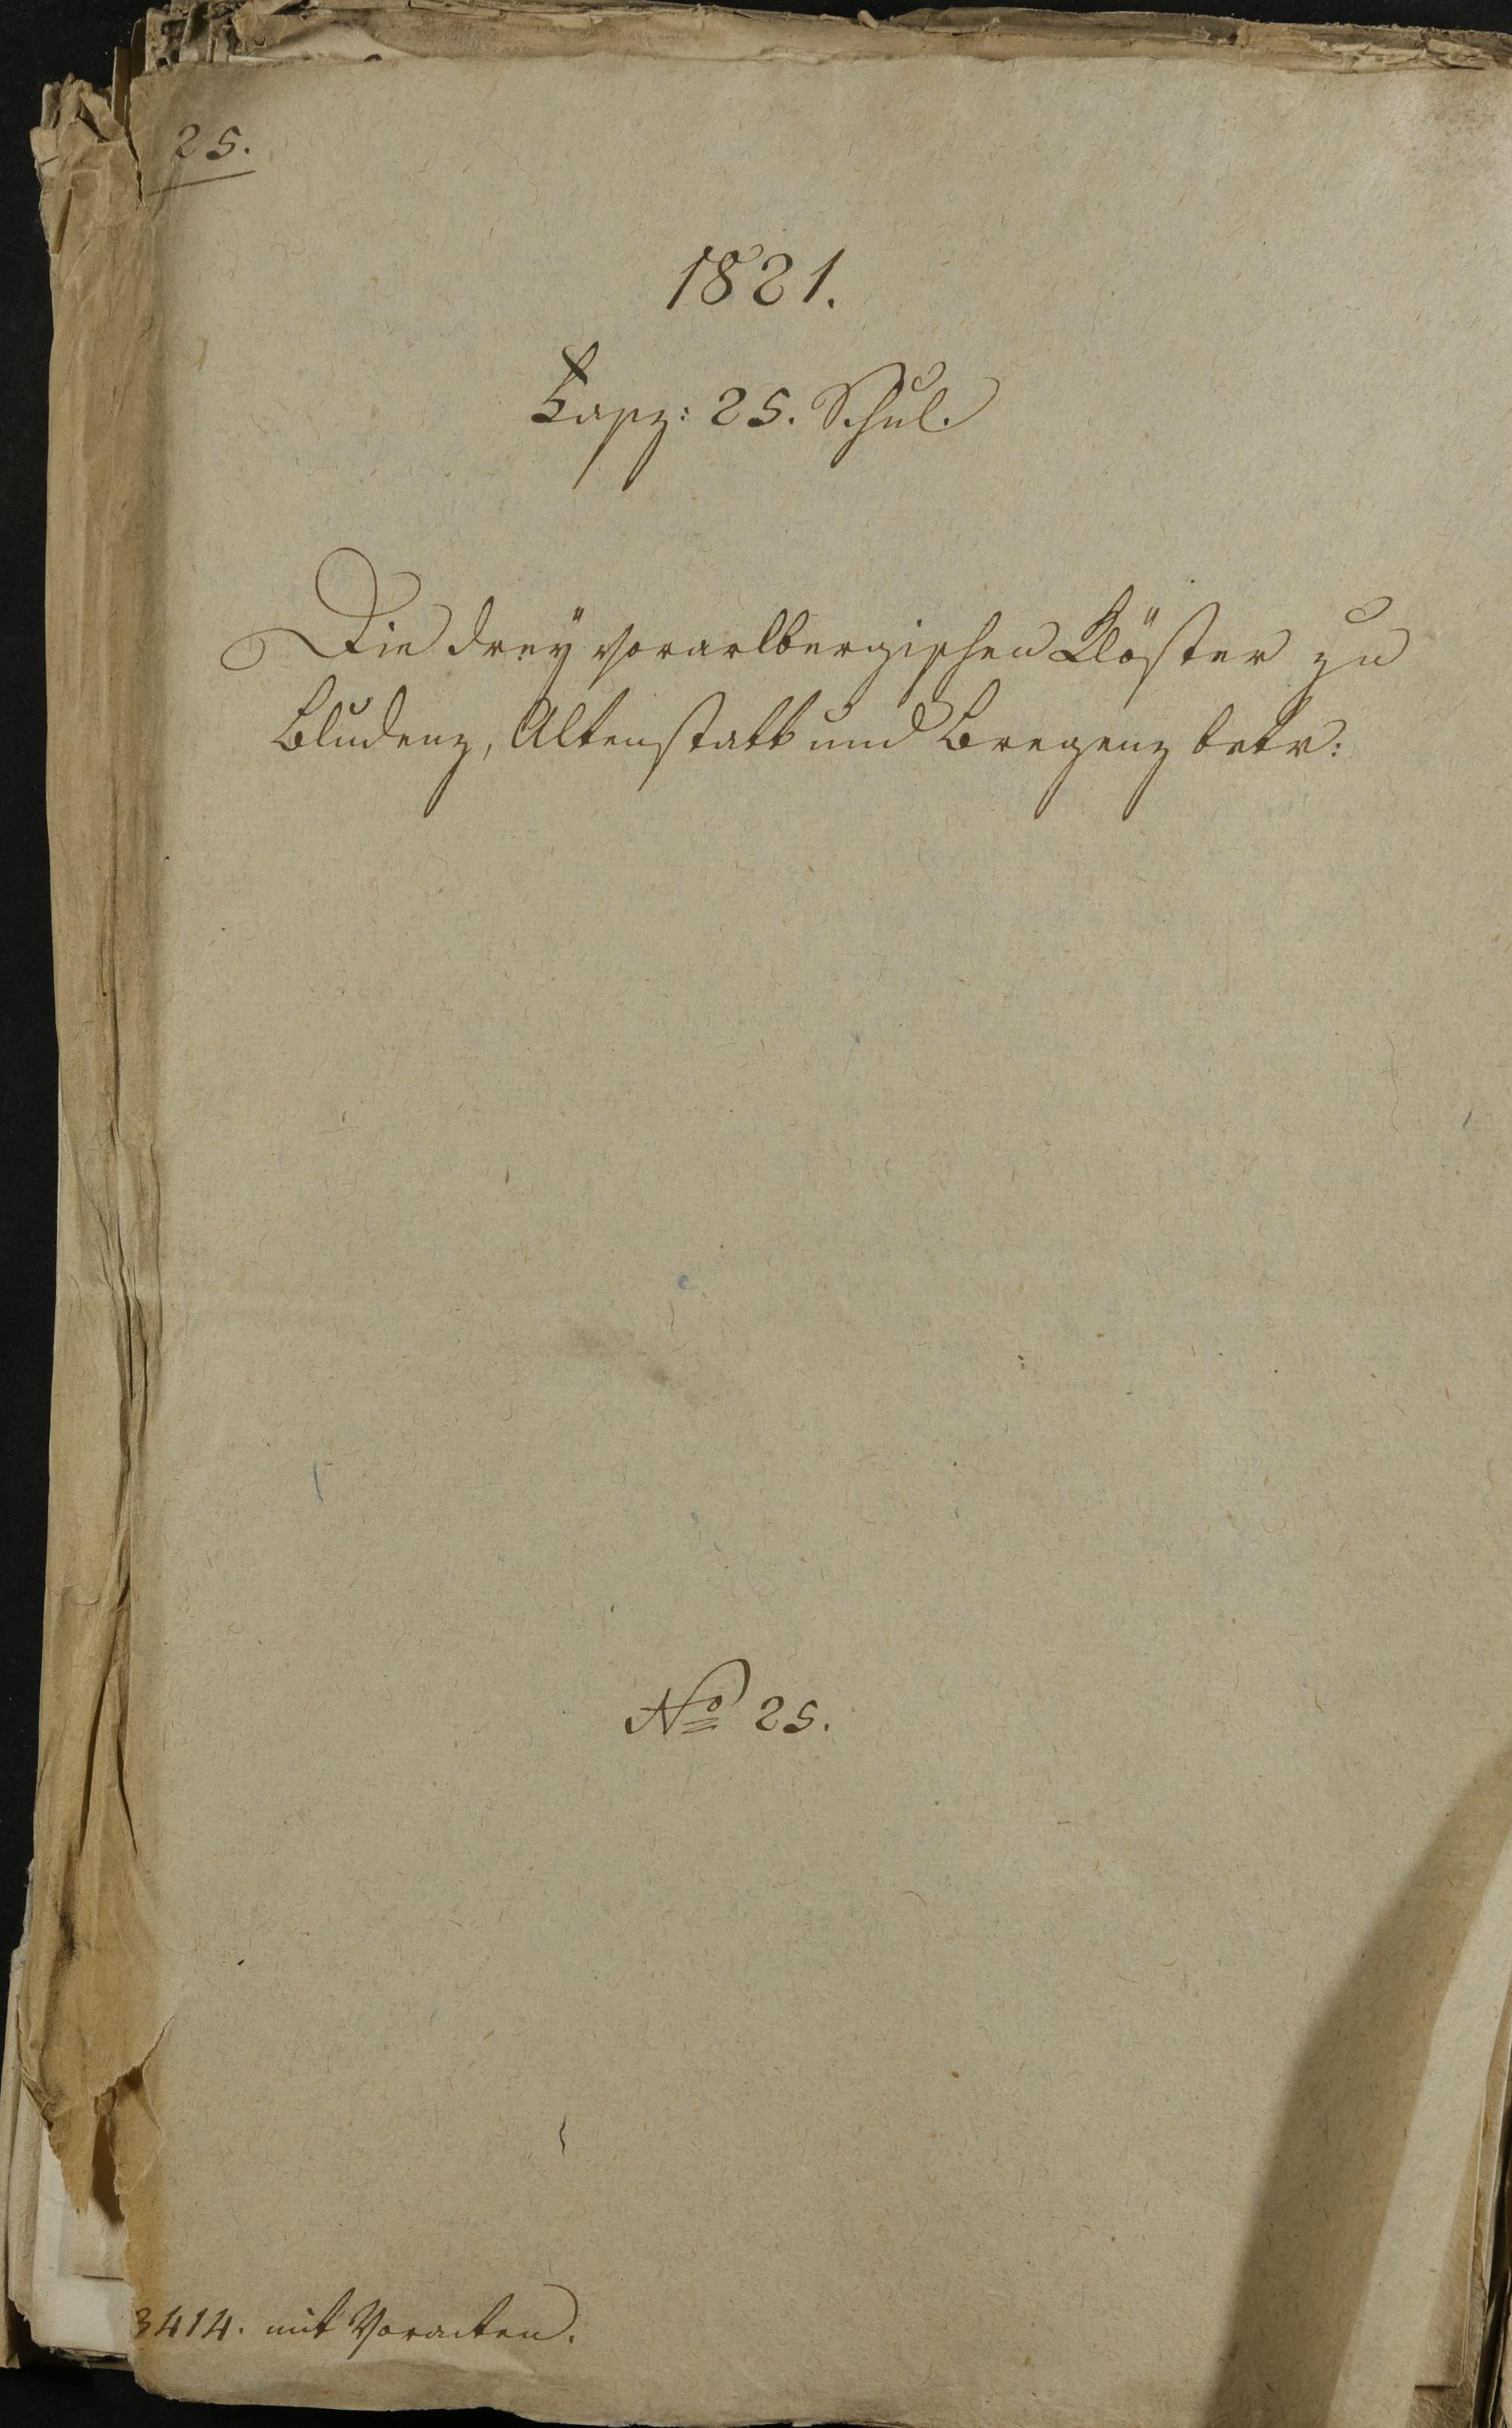 25.
1821.
Fasz: 25. Schul.
Die drey vorarlbergischen Klöster zu
Bludenz, Altenstatt und Bregenz betr:
No 25.
3414. mit Voracten.